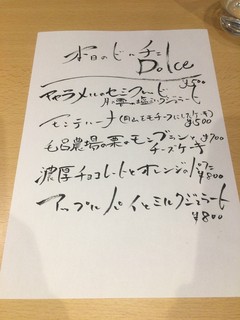 本日のドルチェ
Dolce
キャラメルのセミフレッド ¥500
塩ミルクジェラート
モンテルーナ(月山をモチーフにしたケーキ) ¥500
毛呂農場の栗のモンブランと ¥700
チーズケーキ
濃厚チョコレートとオレンジのパフェ ¥800
アップルパイとミルクジェラート
¥800